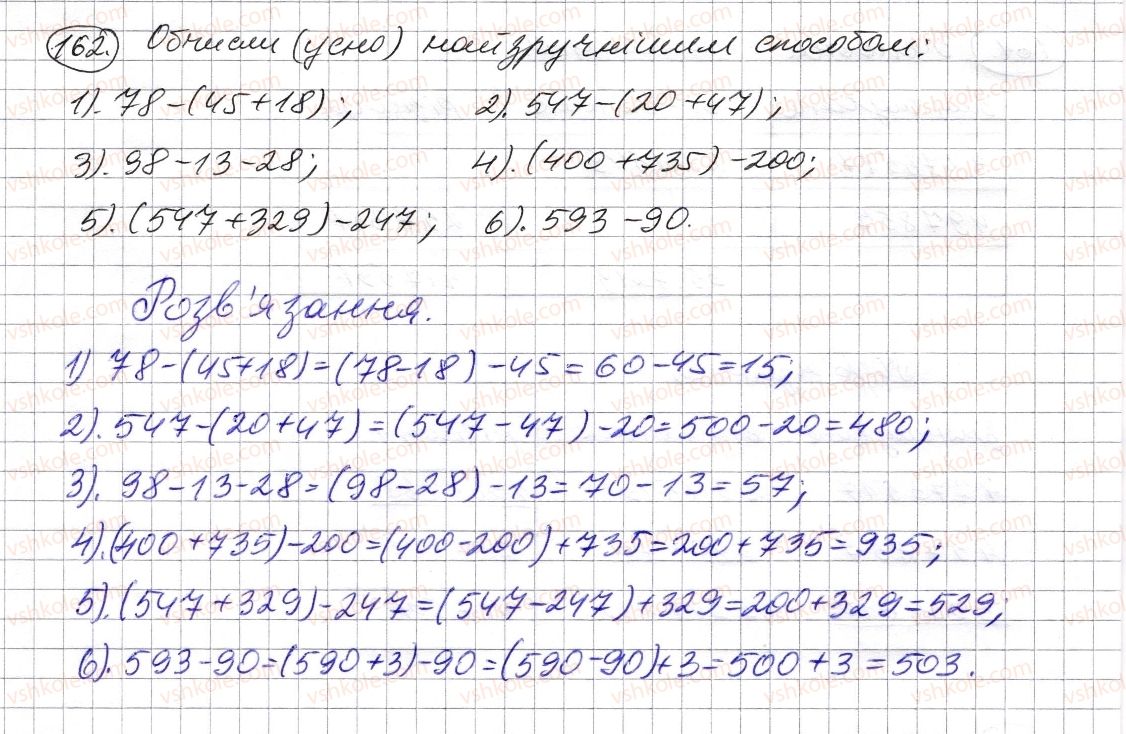 162. Обчисли (усно) найзручнішим способом:
1). 78-(45+18); 2). 547-(20+47);
3). 98-13-28; 4). (400+735)-200;
5). (547+329)-247; 6). 593-90.
Розв'язання.
1) 78-(45+18)=(78-18)-45=60-45=15;
2). 547-(20+47)=(547-47)-20=500-20=480;
3). 98-13-28=(98-28)-13=70-13=57;
4). (400+735)-200=(400-200)+735=200+735=935;
5). (547+329)-247=(547-247)+329=200+329=529;
6). 593-90=(590+3)-90=(590-90)+3=500+3=503.
vshkole.com